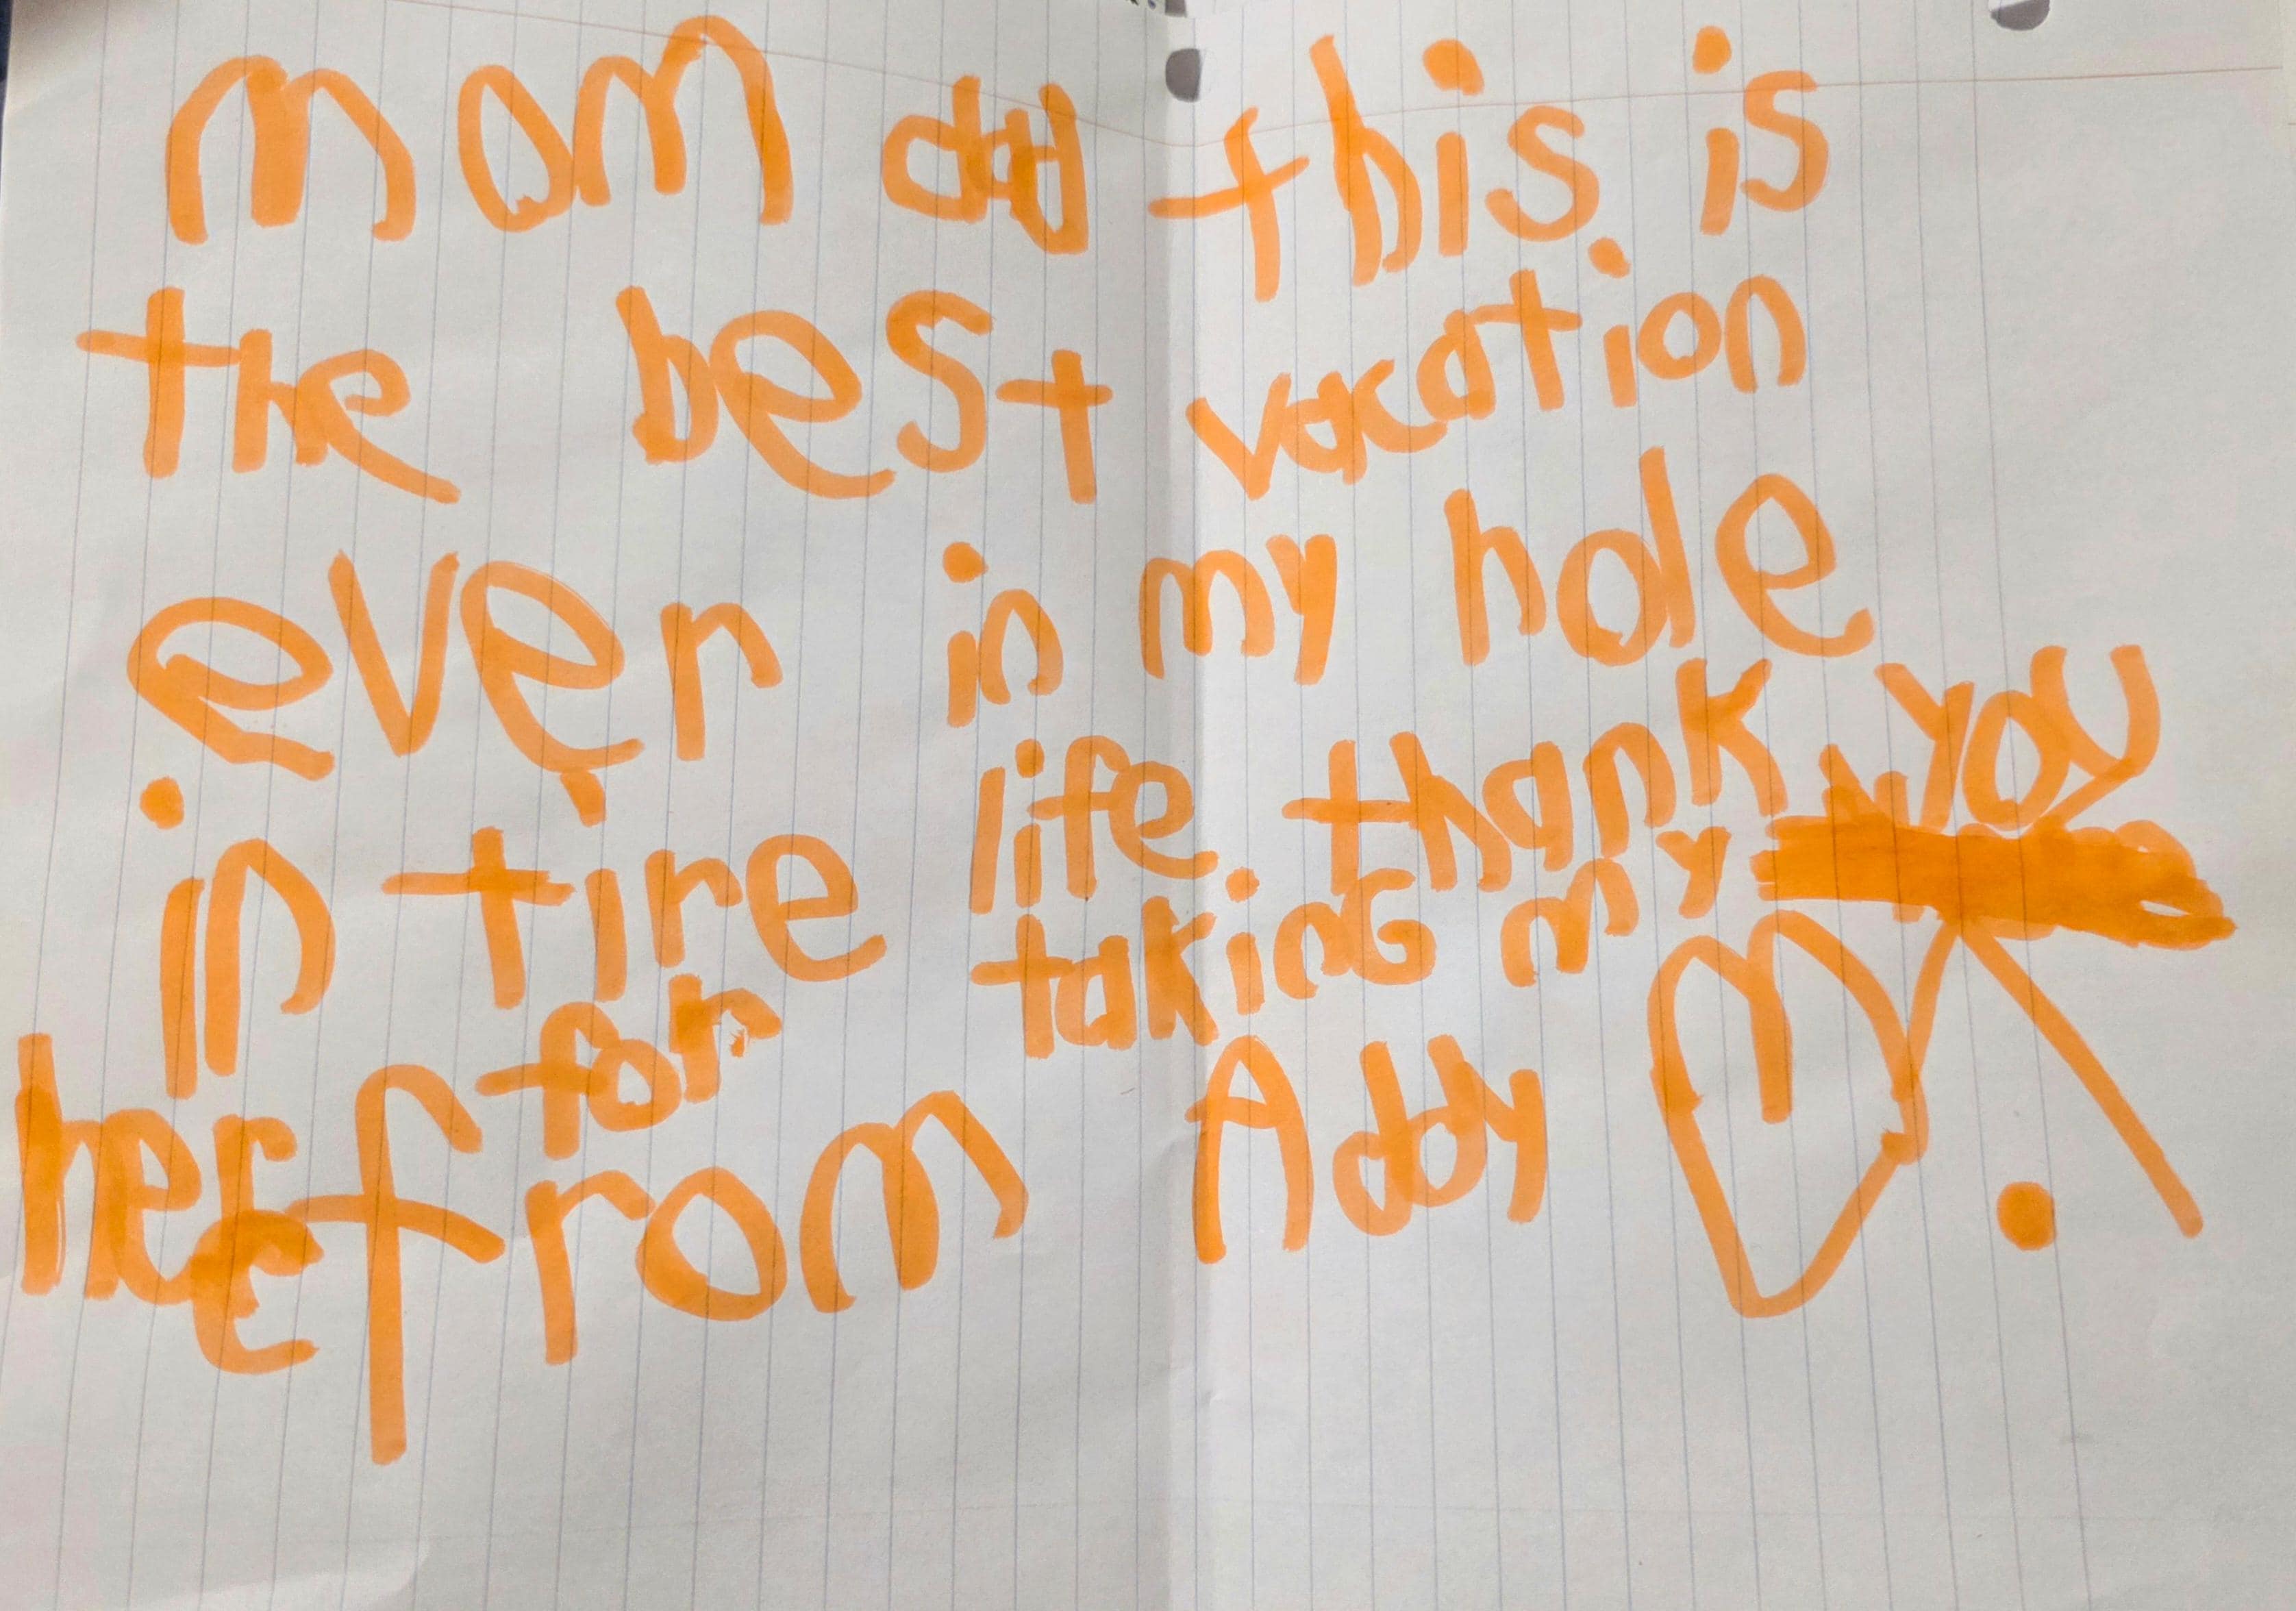 mom dad this is
the best vacation
ever in my hole
in tire life. thank you
for taking my
here from Addy